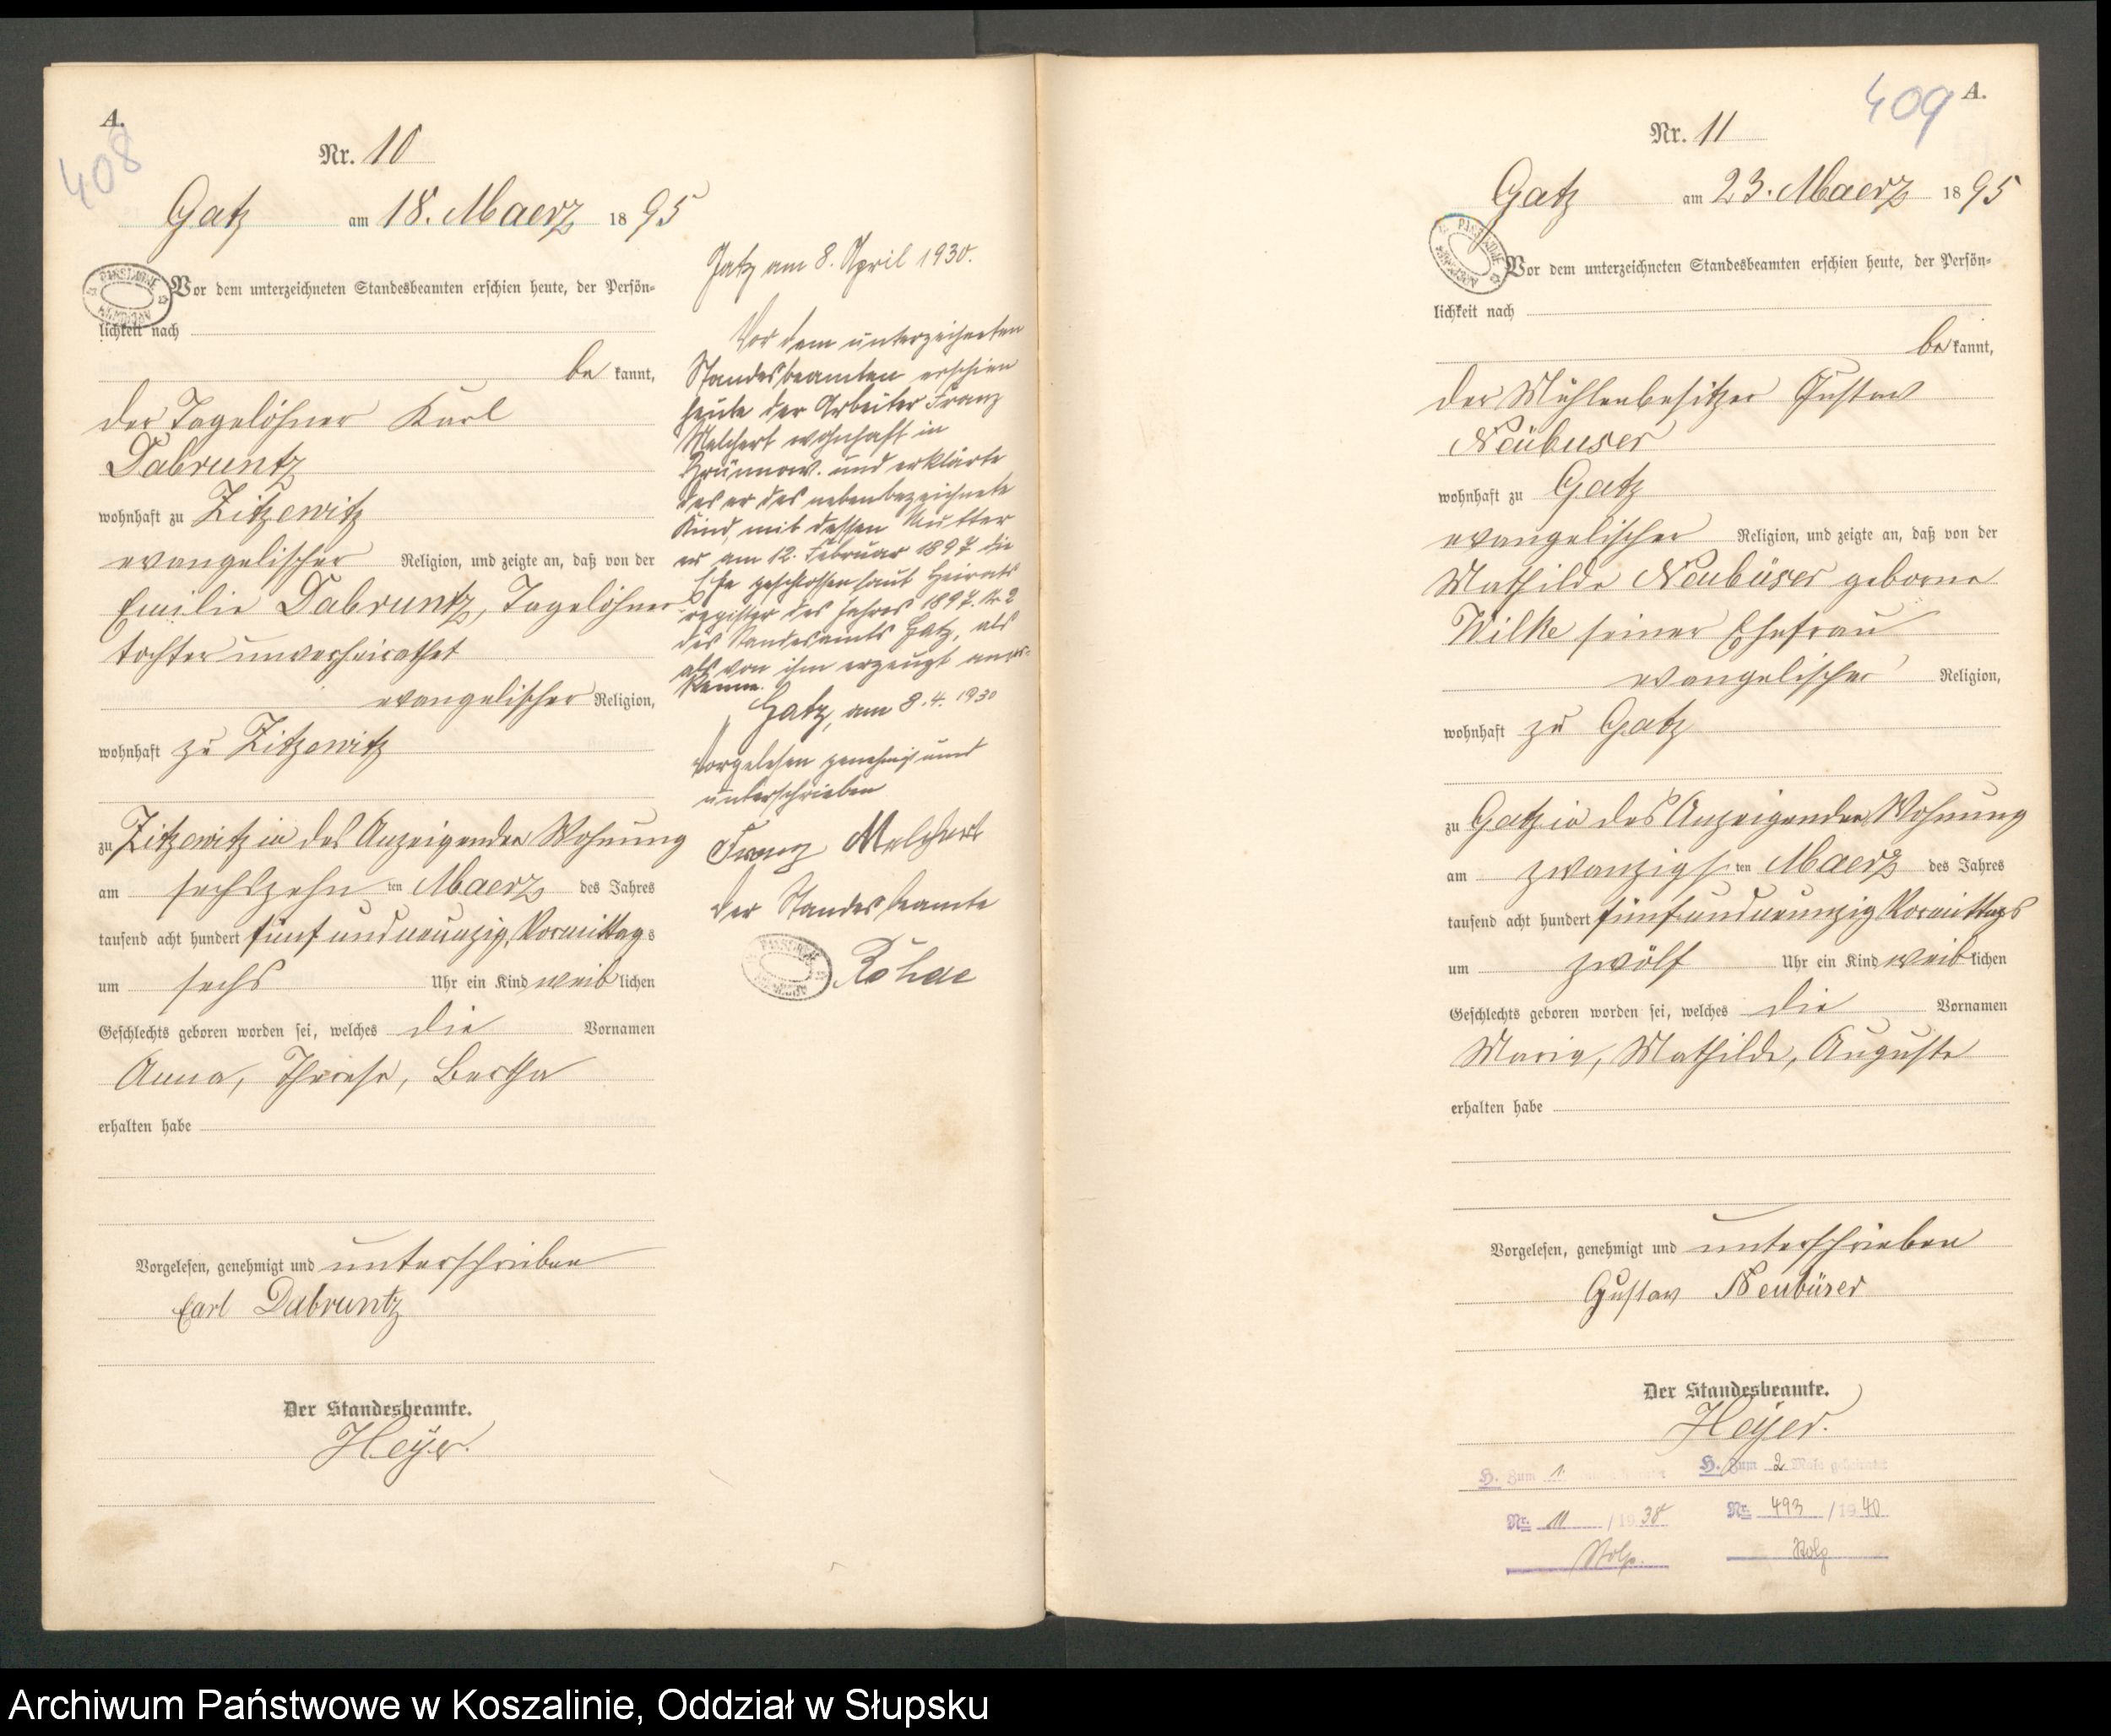 A.
408
Nr. 10
Gatz am 18. Maerz 1895
Vor dem unterzeichneten Standesbeamten erschien heute, der Persön=
lichkeit nach
be kannt,
der Tagelöhner Karl
Dabruntz
wohnhaft zu Zitzewitz
evangelischer Religion, und zeigte an, daß von der
Emilie Dabruntz, Tagelöhner
tochter unverheirathet
evangelischer Religion,
wohnhaft zu Zitzewitz
zu Zitzewitz in des Anzeigenden Wohnung
am sechszehn ten Maerz des Jahres
tausend acht hundert fünf und neunzig, Vormittags
um sechs Uhr ein Kind weiblichen
Geschlechts geboren worden sei, welches die Vornamen
Anna, Therese, Bertha
erhalten habe
Vorgelesen, genehmigt und unterschrieben
Carl Dabruntz
Der Standesbeamte.
Heyer.
Gatz am 8. April 1930.
Vor dem unterzeichneten
Standesbeamten erschien
heute der Arbeiter Franz
Melchert wohnhaft in
Grünnow. und erklärte
das er das nebenbezeichnete
Kind, mit dessen Mutter
er am 12. Februar 1897 die
Ehe geschlossen laut Heirats
register des Jahres 1897. Nr 2
des Standesamts Gatz, als
als von ihm erzeugt aner-
kenne.
Gatz, am 8.4. 1930
Vorgelesen genehmigt und
unterschrieben
Franz Melchert
der Standesbeamte
A.
409
Nr. 11
Gatz am 23. Maerz 1895
Vor dem unterzeichneten Standesbeamten erschien heute, der Persön=
lichkeit nach
be kannt,
der Mühlenbesitzer Gustav
Neübuser
wohnhaft zu Gatz
evangelischer Religion, und zeigte an, daß von der
Mathilde Neubüser geborne
Wilke seiner Ehefrau
evangelischer Religion,
wohnhaft zu Gatz
zu Gatz in des Anzeigenden Wohnung
am zwanzigs ten Maerz des Jahres
tausend acht hundert fünf und neunzig Vormittags
um zwölf Uhr ein Kind weiblichen
Geschlechts geboren worden sei, welches die Vornamen
Marie, Mathilde, Auguste
erhalten habe
Vorgelesen, genehmigt und unterschrieben
Gustav Neubüser
Der Standesbeamte.
Heyer.
H. Zum 1.
Nr. 11 /1938
Stolp.
H. Zum 2 Male geheiratet
Nr. 493 /1940
Stolp
Archiwum Państwowe w Koszalinie, Oddział w Słupsku